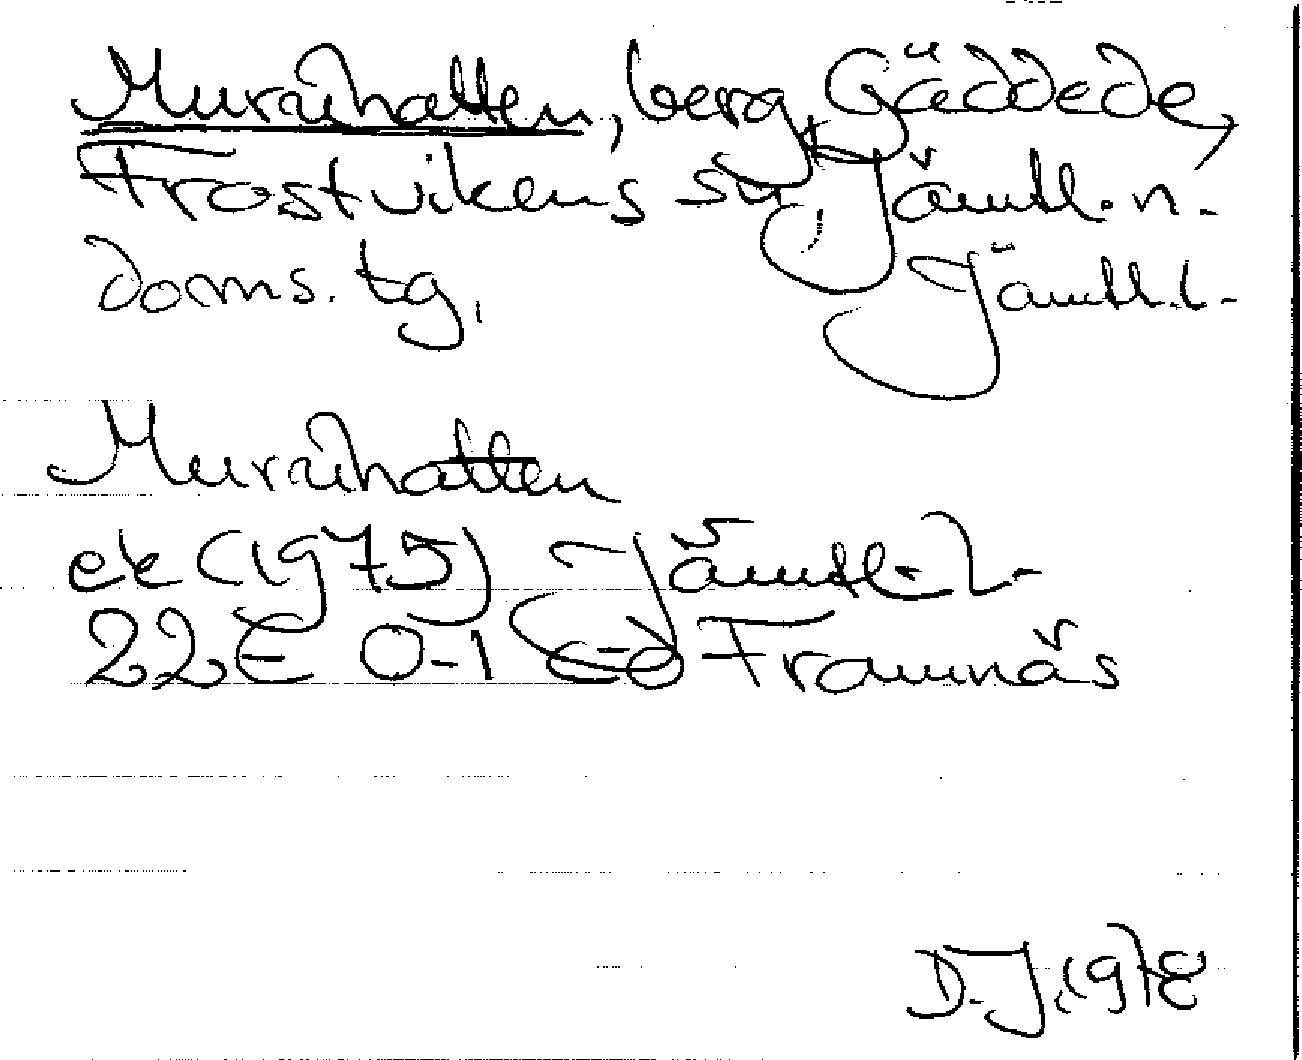 Muruhatten, berg, Gäddede,
Frostvikens sn, Jämtl. n.
doms. tg, Jämtl. l.
Muruhatten
ek (1975) Jämtl. l.
22E 0-1 c-d Frannäs
D.J. 1978